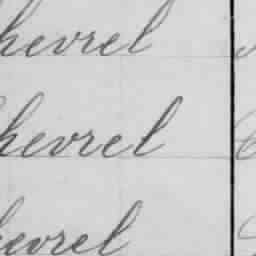 hevrel
hevrel
hevrel